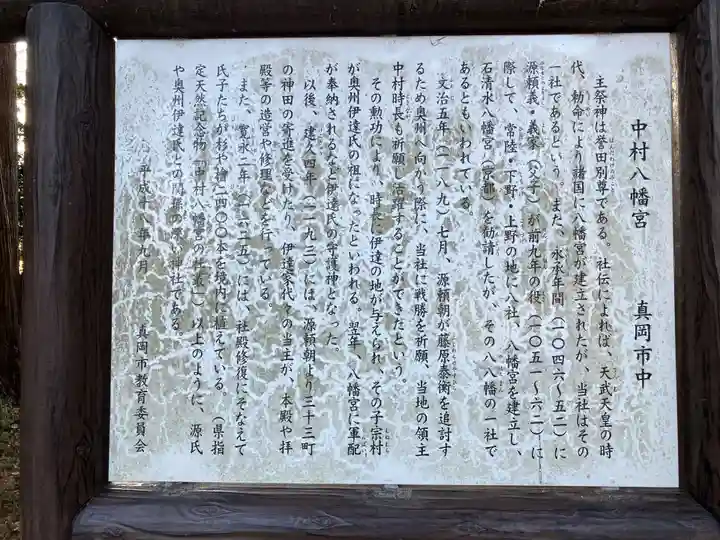 中村八幡宮　真岡市中
主祭神は誉田別尊である。社伝によれば、天武天皇の時
代、勅命により諸国に八幡宮が建立されたが、当社はその
一社であるという。また、永承年間(一〇四六～五二)に
源頼義・義家(父子)が前九年の役(一〇五一～六二)に
際して、常陸・下野・上野の地に八社、八幡宮を建立し、
石清水八幡宮(京都)を勧請したが、その八八幡の一社で
あるともいわれている。
文治五年(一一八九)七月、源頼朝が藤原泰衡を追討す
るため奥州へ向かう際に、当社に戦勝を祈願、当地の領主
中村時長も祈願し活躍することができたという。
その勲功により、時長に伊達の地が与えられ、その子宗村
が奥州伊達氏の祖になったといわれる。翌年、八幡宮に軍配
が奉納されるなど伊達氏の守護神となった。
以後、建久四年(一一九三)には、源頼朝より三十三町
の神田の寄進を受けたり、伊達家代々の当主が、本殿や拝
殿等の造営や修理などを行っている。
また、寛永二年(一六二五)には、社殿修復にそなえて
氏子たちが杉や檜一四〇〇本を境内に植えている。(県指
定天然記念物「中村八幡宮の社叢」)以上のように、源氏
や奥州伊達氏との関係の深い神社である。
平成十八年九月　真岡市教育委員会